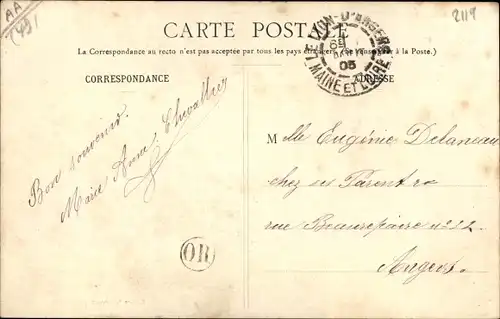 AA
(49)
2119
CARTE POSTALE
La Correspondance au recto n'est pas acceptée par tous les pays étrangers (se renseigner à la Poste.)
LE LION-D'ANGERS
05
MAINE ET LOIRE
CORRESPONDANCE
ADRESSE
Bon souvenir.
Marie Anne Chevallier
Melle Eugénie Delaneau
chez ses Parents
rue Beaurepaire no 22
Angers.
OR